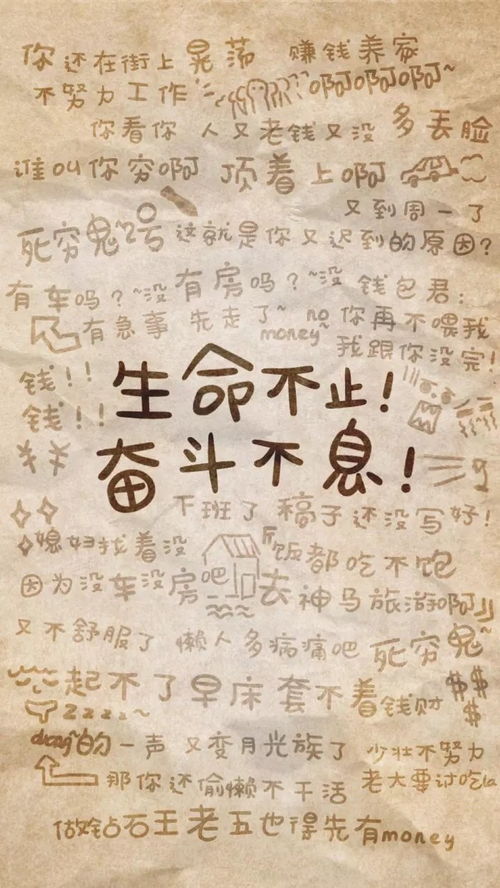 你还在街上晃荡 赚钱养家
不努力工作 啊啊啊啊~
你看你 人又老钱又没 多丢脸
谁叫你穷啊 顶着上啊
又到周一了
死穷鬼~2号 这就是你又迟到的原因?
有车吗?~没 有房吗?~没 钱包君:
有急事 先走了~ no money~ 你再不喂我
我跟你没完!
钱!!
钱!!
生命不止!
奋斗不息!
下班了 稿子还没写好!
媳妇找着没 饭都吃不饱
因为没车没房吧 去神马旅游啊』
又不舒服了 懒人多病痛吧 死穷鬼~
起不了早床 套不着钱财 $$$$
zzzz~
duang~的一声 又变月光族了 少壮不努力
那你还偷懒不干活 老大要讨吃la
做钻石王老五也得先有money